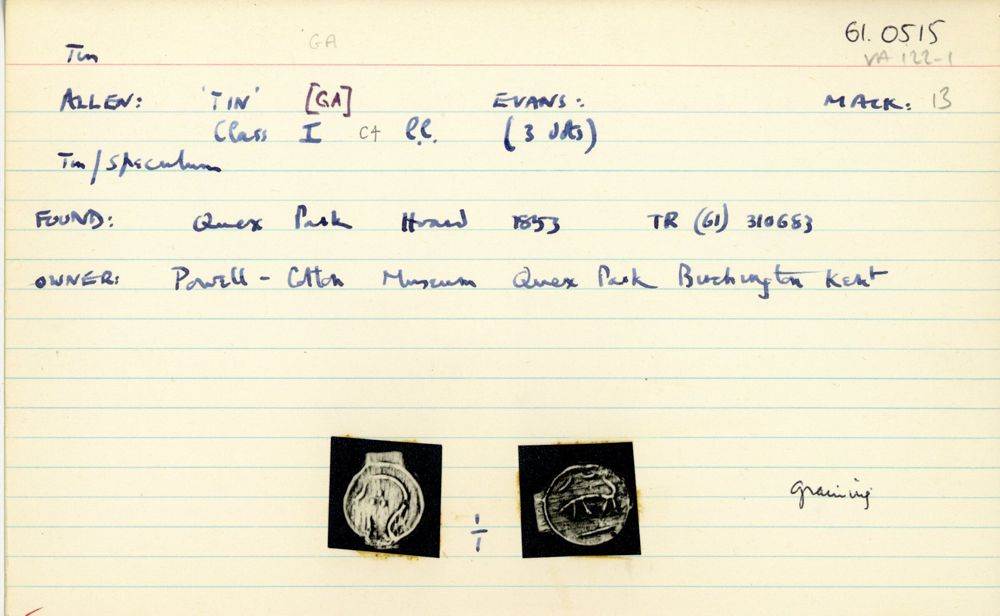 GA 61.0515
Tin VA 122-1
ALLEN: 'TIN' [GA] EVANS: MACK: 13
Class I C4 l.l. (3 dots)
Tin/Speculum
FOUND: Quex Park Hoard 1853 TR (61) 310683
OWNER: Powell-Cotton Museum Quex Park Birchington Kent
1/1
graining